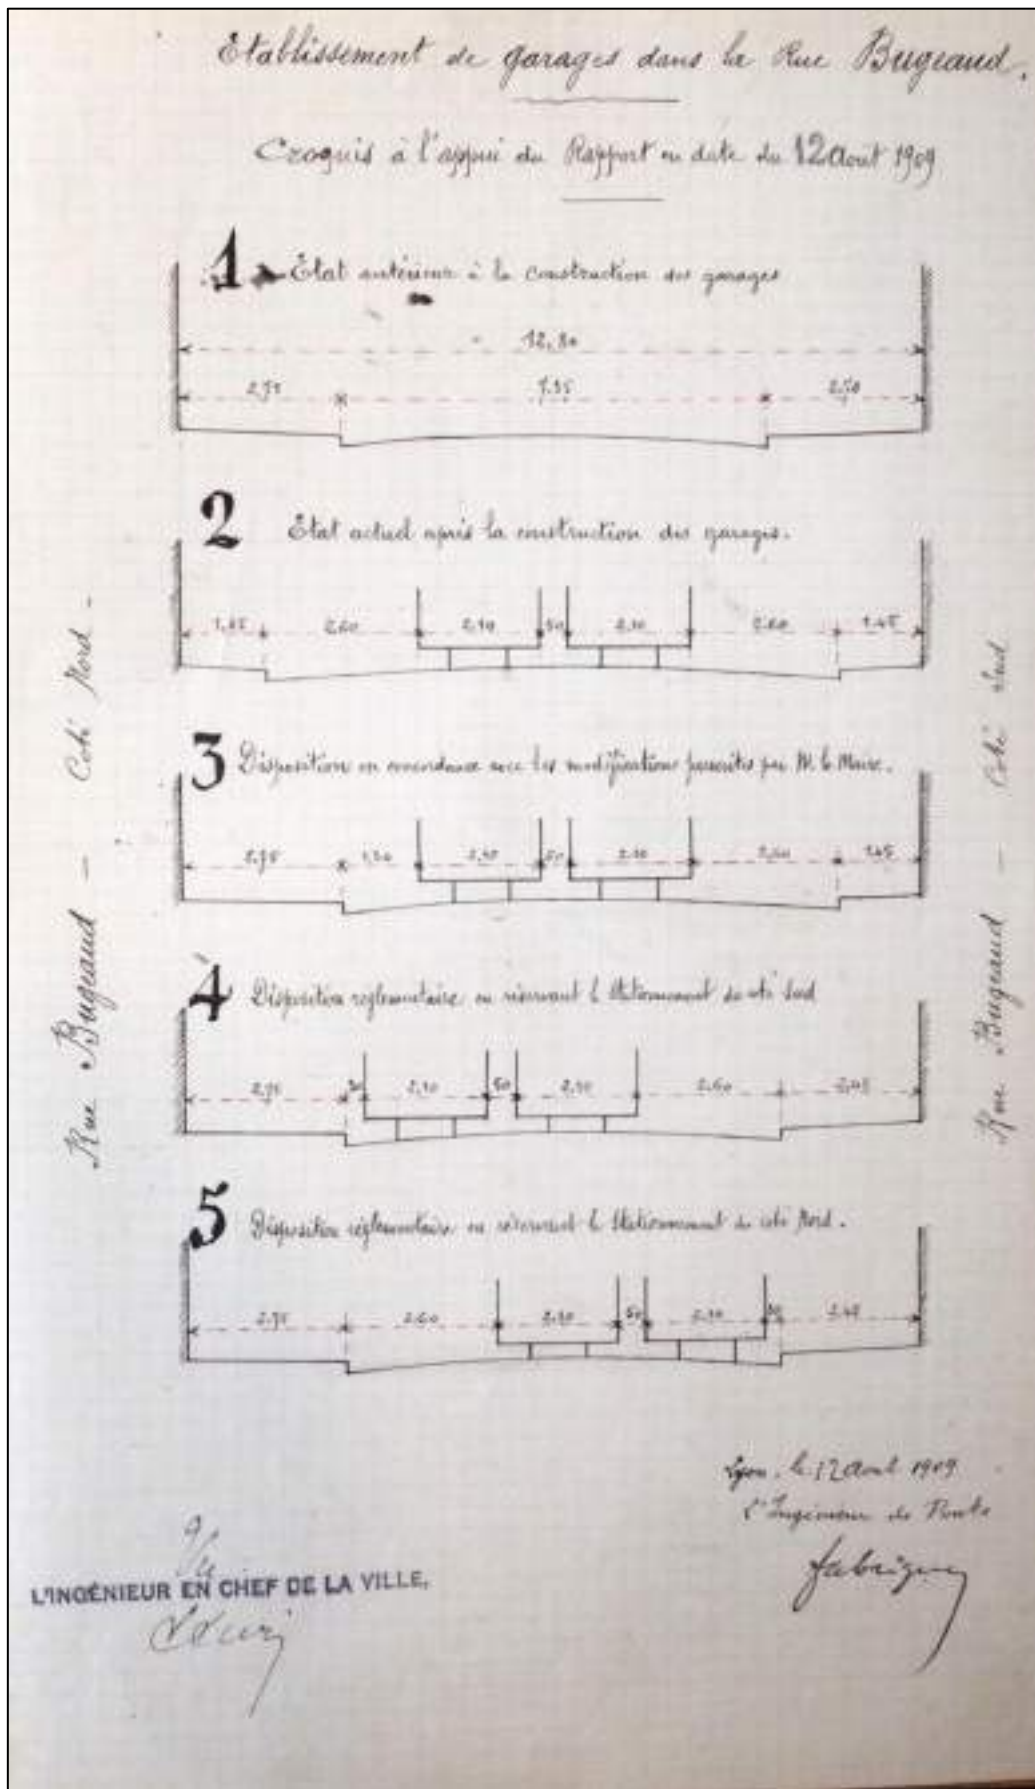 Etablissement de garages dans la Rue Bugeaud.
Croquis à l'appui du Rapport en date du 12 Août 1909
1 Etat antérieur à la construction des garages
12,80
2,75 7,35 2,70
2 Etat actuel après la construction des garages.
2.60 2,10 50 2,10 2.60 1.45
3 Disposition en concordance avec les modifications prescrites par M. le Maire.
2.75 1,20 2,10 50 2.10 2,60 1,45
4 Disposition réglementaire en réservant le Stationnement du côté Sud
2,75 30 2,10 50 2,10 2,60 2,45
5 Disposition réglementaire en réservant le Stationnement du côté Nord.
2.75 2.60 2.10 50 2.10 30 2.45
Rue Bugeaud — Coté Nord -
Rue Bugeaud — Coté Sud
Lyon, le 12 Août 1909
L'Ingénieur
Vu
L'INGÉNIEUR EN CHEF DE LA VILLE,